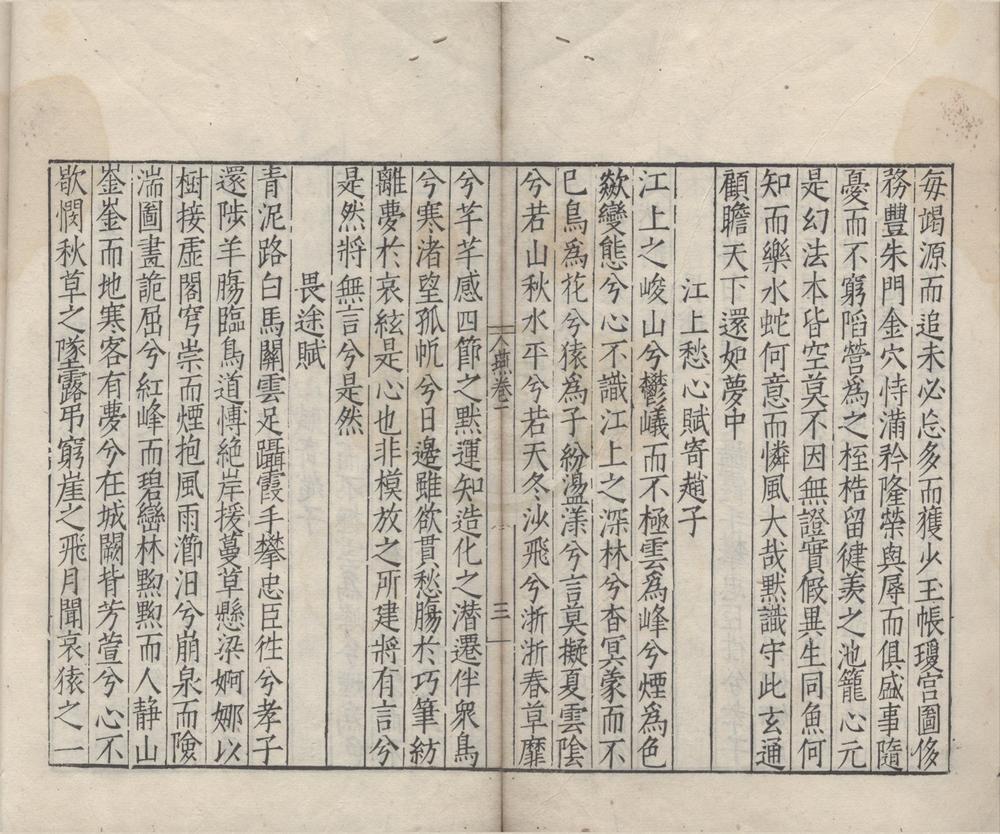 每竭源而追未必忘多而獲少玉帳瓊宮圖侈
務豐朱門金穴恃滿矜隆榮與辱而俱盛事隨
憂而不窮陷營為之桎梏留健羨之池籠心元
是幻法本皆空莫不因無證實假異生同魚何
知而樂水蛇何意而憐風大哉默識守此玄通
顧瞻天下還如夢中
江上愁心賦寄趙子
江上之峻山兮鬱㠖而不極雲為峰兮煙為色
歘變態兮心不識江上之深林兮杳冥濛而不
已鳥為花兮猿為子紛溋漾兮言莫擬夏雲陰
兮若山秋水平兮若天冬沙飛兮淅淅春草靡
燕卷一
三
兮芊芊感四節之默運知造化之潛遷伴衆鳥
兮寒渚望孤帆兮日邊雖欲貫愁腸於巧筆紡
離夢於哀絃是心也非模放之所建將有言兮
是然將無言兮是然
畏途賦
青泥路白馬關雲足躡霞手攀忠臣徃兮孝子
還陟羊腸臨鳥道慱絶岸援蔓草懸梁婀娜以
樹接虛閣穹崇而煙抱風雨㵎汨兮崩泉而險
湍圖畫詭屈兮紅峰而碧巒林黝黝而人静山
崟崟而地寒客有夢兮在城闕皆芳萱兮心不
歇憫秋草之墜露弔窮崖之飛月聞哀猿之一